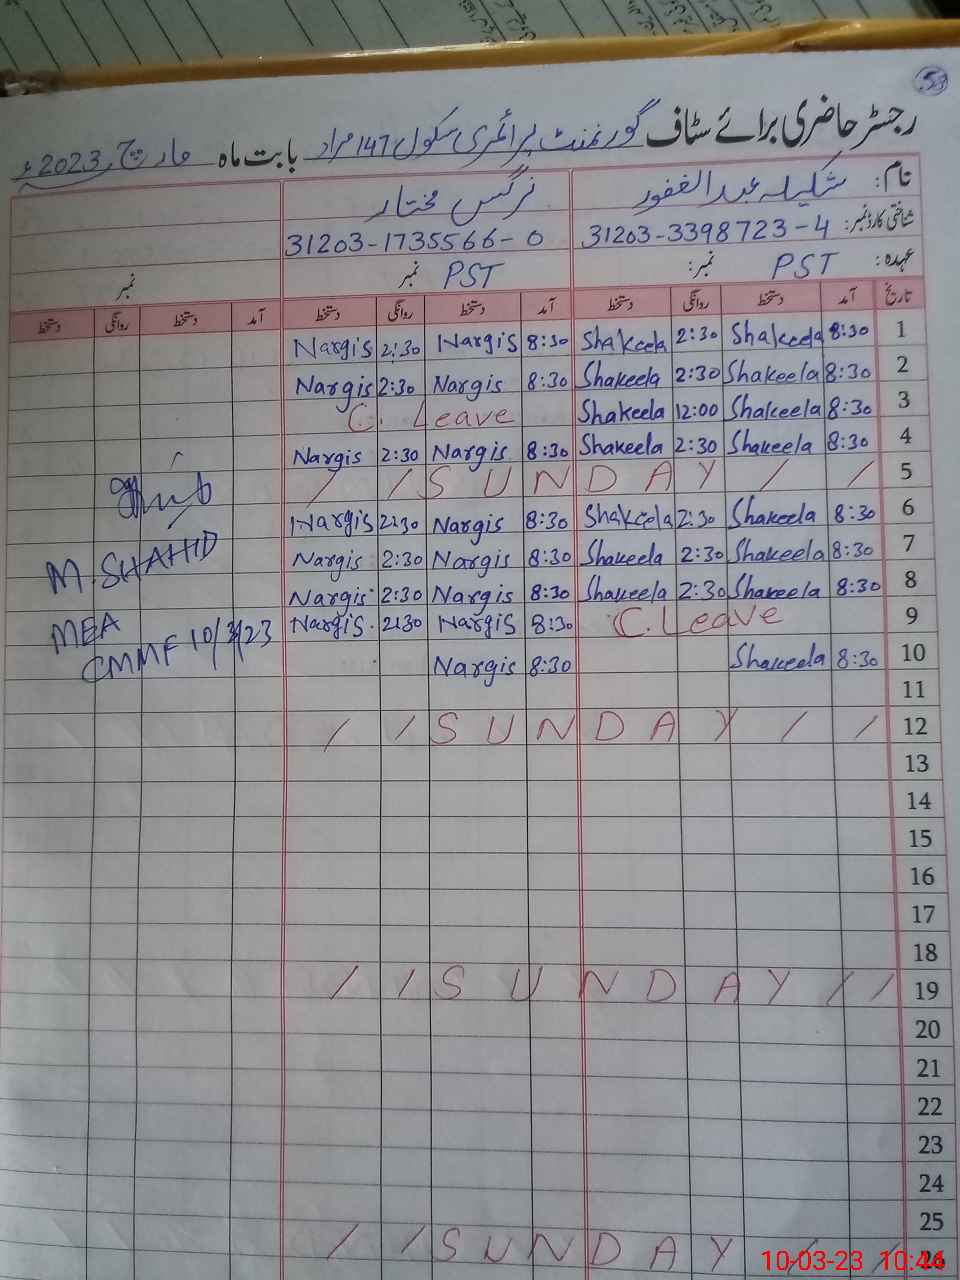 53
رجسٹر حاضری برائے سٹاف گورنمنٹ پرائمری سکول 147 مراد بابت ماہ مارچ 2023ء
نام: شکیلہ عبدالغفور نرگس مختار
شناختی کارڈ نمبر: 31203-3398723-4 31203-1735566-0
عہدہ: PST نمبر: PST نمبر نمبر
تاریخ آمد دستخط روانگی دستخط آمد دستخط روانگی دستخط آمد دستخط روانگی دستخط
1 8:30 Shakeela 2:30 Shakeela 8:30 Nargis 2:30 Nargis
2 8:30 Shakeela 2:30 Shakeela 8:30 Nargis 2:30 Nargis
3 8:30 Shakeela 12:00 Shakeela C. Leave
4 8:30 Shakeela 2:30 Shakeela 8:30 Nargis 2:30 Nargis
5 / / SUNDAY / /
6 8:30 Shakeela 2:30 Shakeela 8:30 Nargis 2:30 Nargis
7 8:30 Shakeela 2:30 Shakeela 8:30 Nargis 2:30 Nargis
M. SHAHID
8 8:30 Shakeela 2:30 Shakeela 8:30 Nargis 2:30 Nargis
9 C. Leave 8:30 Nargis 2:30 Nargis
MEA
CMMF 10/3/23
10 8:30 Shakeela 8:30 Nargis
11
12 / / SUNDAY / /
13
14
15
16
17
18
19 / / SUNDAY / /
20
21
22
23
24
25
26 / / SUNDAY / /
10-03-23 10:44